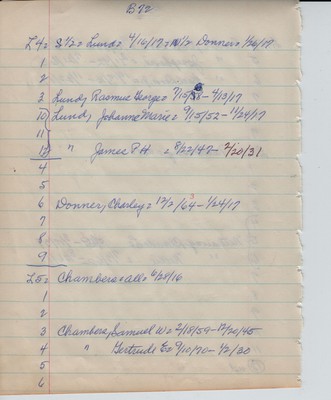 B 1/2
L4 = S 1/2 = Lund = 4/16/17 - N 1/2 Donner = 1/26/17
1
2
3 Lund, Rasmus George = 7/15/58 - 4/13/17
10 Lund, Johanne Marie = 9/15/52 - 4/24/17
11
12 " James P H = 8/22/47 - 2/20/31
4
5
6 Donner, Charley = 12/2/64 - 1/24/17
7
8
9
L5 = Chambers = all = 6/20/16
1
2
3 Chambers, Samuel W = 2/18/59 - 12/20/45
4 " Gertrude E = 9/10/70 - 1/2/30
5
6